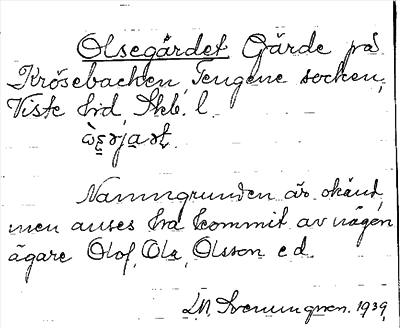 Olsegårdet Gärde på
Krösebacken, Tengene socken,
Viste hrd, Skb. l.

Namngrunden är okänd,
men anses ha kommit av någon
ägare Olof, Ola, Olsson e.d.
1939